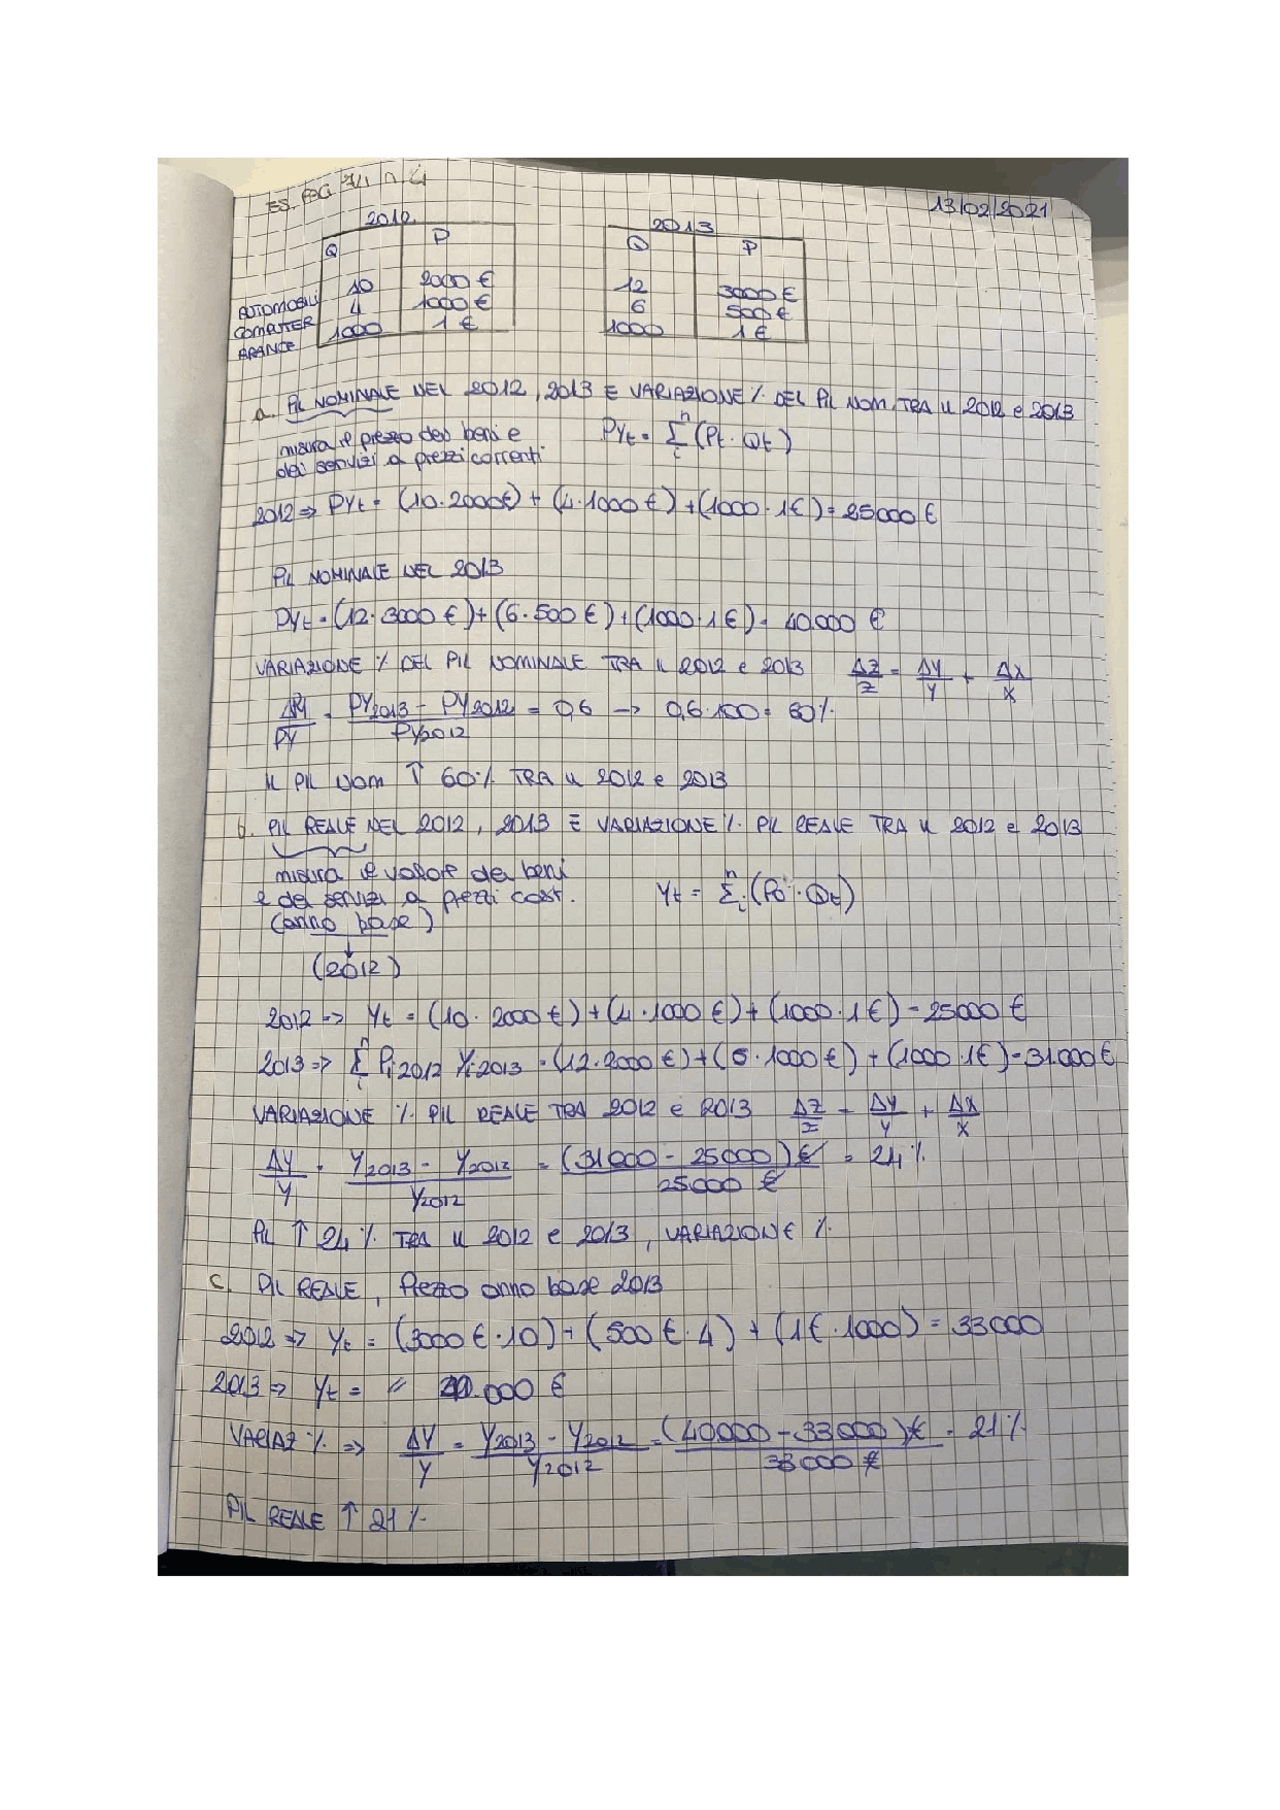 ES. PAG 71 n. 4
13/02/2021
2012 2013
Q P Q P
AUTOMOBILI 10 2000 € 12 3000 €
COMPUTER 4 1000 € 6 500 €
ARANCE 1000 1 € 1000 1 €
a. PIL NOMINALE NEL 2012, 2013 E VARIAZIONE % DEL PIL NOM. TRA IL 2012 e 2013
misura il prezzo dei beni e
dei servizi a prezzi correnti
PYt = Σ (Pt · Qt)
2012 ⇒ PYt = (10·2000€) + (4·1000 €) + (1000·1€) = 25000 €
PIL NOMINALE NEL 2013
PYt = (12·3000 €) + (6·500 €) + (1000·1€) = 40.000 €
VARIAZIONE % DEL PIL NOMINALE TRA IL 2012 e 2013 ΔZ/Z = ΔY/Y + ΔX/X
ΔPY/PY = (PY2013 - PY2012)/PY2012 = 0,6 → 0,6·100 = 60%
IL PIL NOM ↑ 60% TRA IL 2012 e 2013
b. PIL REALE NEL 2012, 2013 E VARIAZIONE % PIL REALE TRA IL 2012 e 2013
misura il valore dei beni
e dei servizi a prezzi cost.
(anno base)
Yt = Σ (P0 · Qt)
(2012)
2012 ⇒ Yt = (10·2000 €) + (4·1000 €) + (1000·1€) = 25000 €
2013 ⇒ Σ Pi2012 Yi2013 = (12·2000 €) + (6·1000 €) + (1000·1€) = 31.000 €
VARIAZIONE % PIL REALE TRA 2012 e 2013 ΔZ/Z = ΔY/Y + ΔX/X
ΔY/Y = (Y2013 - Y2012)/Y2012 = (31000 - 25000)€/25000 € = 24%
PIL ↑ 24% TRA IL 2012 e 2013, VARIAZIONE %
c. PIL REALE, Prezzo anno base 2013
2012 ⇒ Yt = (3000 €·10) + (500 €·4) + (1€·1000) = 33000
2013 ⇒ Yt = // 40.000 €
VARIAZ % ⇒ ΔY/Y = (Y2013 - Y2012)/Y2012 = (40000 - 33000)€/33000 € = 21%
PIL REALE ↑ 21%